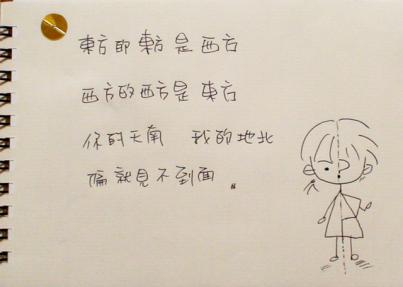 東方的東方是西方
西方的西方是東方
你的天南 我的地北
偏就見不到面